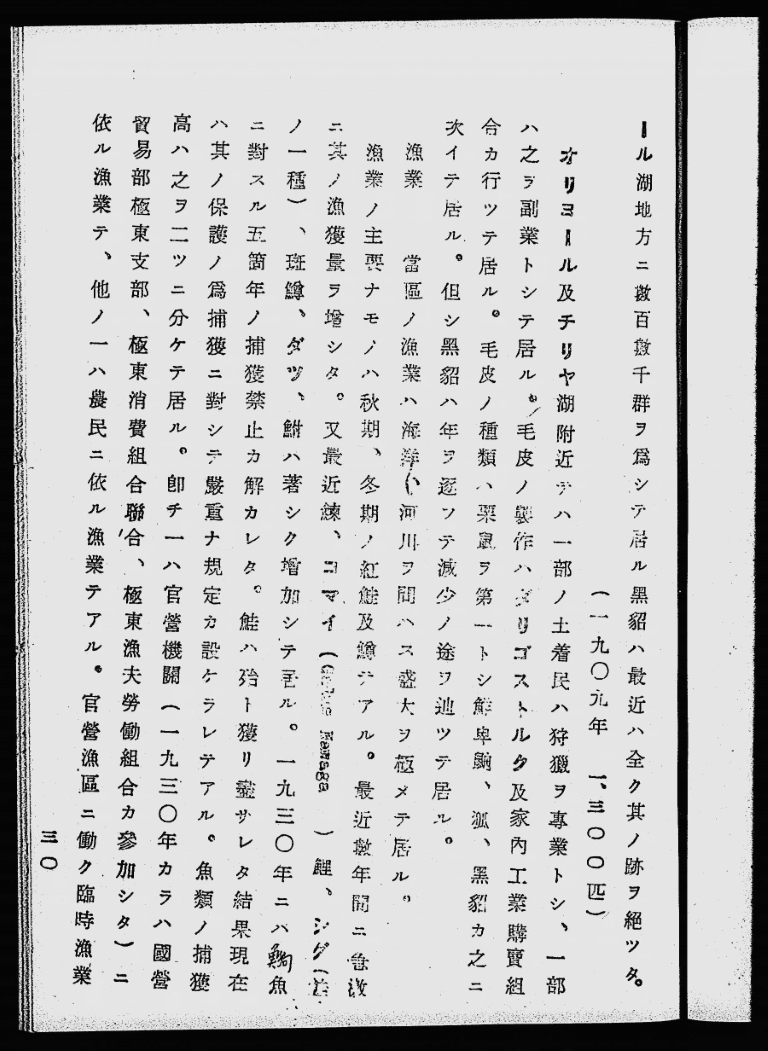 ール湖地方ニ數百數千群ヲ爲シテ居ル黑貂ハ最近ハ全ク其ノ跡ヲ絕ツタ。
(一九〇九年 一、三〇〇匹)
オリヨール及チリヤ湖附近テハ一部ノ土着民ハ狩獵ヲ專業トシ、一部
ハ之ヲ副業トシテ居ル。毛皮ノ製作ハダリゴストルク及家內工業購買組
合カ行ツテ居ル。毛皮ノ種類ハ栗鼠ヲ第一トシ鮮卑鼬、狐、黑貂カ之ニ
次イテ居ル。但シ黑貂ハ年ヲ逐フテ減少ノ途ヲ辿ツテ居ル。
漁業 當區ノ漁業ハ海洋、河川ヲ問ハス盛大ヲ極メテ居ル。
漁業ノ主要ナモノハ秋期、冬期ノ紅鮭及鱒テアル。最近數年間ニ急激
ニ其ノ漁獲量ヲ增シタ。又最近鰊、コマイ( Navaga )鯉、シグ(
ノ一種)、斑鱒、ダツ、鮒ハ著シク增加シテ居ル。一九三〇年ニハ鰉魚
ニ對スル五箇年ノ捕獲禁止カ解カレタ。鮭ハ殆ト獲リ盡サレタ結果現在
ハ其ノ保護ノ爲捕獲ニ對シテ嚴重ナ規定カ設ケラレテアル。魚類ノ捕獲
高ハ之ヲ二ツニ分ケテ居ル。卽チ一ハ官營機關(一九三〇年カラハ國營
貿易部極東支部、極東消費組合聯合、極東漁夫勞働組合カ參加シタ)ニ
依ル漁業テ、他ノ一ハ農民ニ依ル漁業テアル。官營漁區ニ働ク臨時漁業
三〇